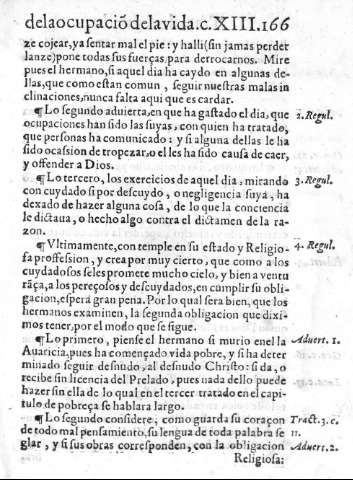 dela ocupació dela vida.c.XIII.166
ze cojear, ya sentar mal el pie: y halli (sin jamas perder
lanze) pone todas sus fuerças para derrocarnos. Mire
pues el hermano, si aquel dia ha caydo en algunas de-
llas, que como estan comun, seguir nuestras malas in
clinaciones, nunca falta aqui que es cardar.
¶Lo segundo aduierta, en que ha gastado el dia, que 2. Regul.
ocupaciones han sido las suyas, con quien ha tratado,
que personas ha comunicado: y si alguna dellas le ha
sido ocasion de tropezar, o el les ha sido causa de caer,
y offender a Dios.
¶Lo tercero, los exercicios de aquel dia, mirando 3. Regul.
con cuydado si por descuydo, o negligencia suya, ha
dexado de hazer alguna cosa, de lo que la conciencia
le dictaua, o hecho algo contra el dictamen de la ra-
zon.
¶Vltimamente, con temple en su estado y Religio- 4. Regul.
sa proffession, y crea por muy cierto, que como a los
cuydadosos se les promete mucho cielo, y bien a ventu
rãça, a los pereçosos y descuydados, en cumplir su obli-
gacion, espera gran pena. Por lo qual sera bien, que los
hermanos examinen, la segunda obligacion que dixi-
mos tener, por el modo que se sigue.
¶Lo primero, piense el hermano si murio en el la Aduert. 1.
Auaricia, pues ha començado vida pobre, y si ha deter
minado seguir desnudo, al desnudo Christo: si da, o
recibe sin licencia del Prelado, pues nada dello puede
hazer sin ella de lo qual en el tercer tratado en el capi-
tulo de pobreça se hablara largo.
¶Lo segundo considere, como guarda su coraçon Tract. 3. c.
de todo mal pensamiento, su lengua de toda palabra se 11.
glar, y si sus obras corresponden, con la obligacion Aduert. 2.
Religiosa: